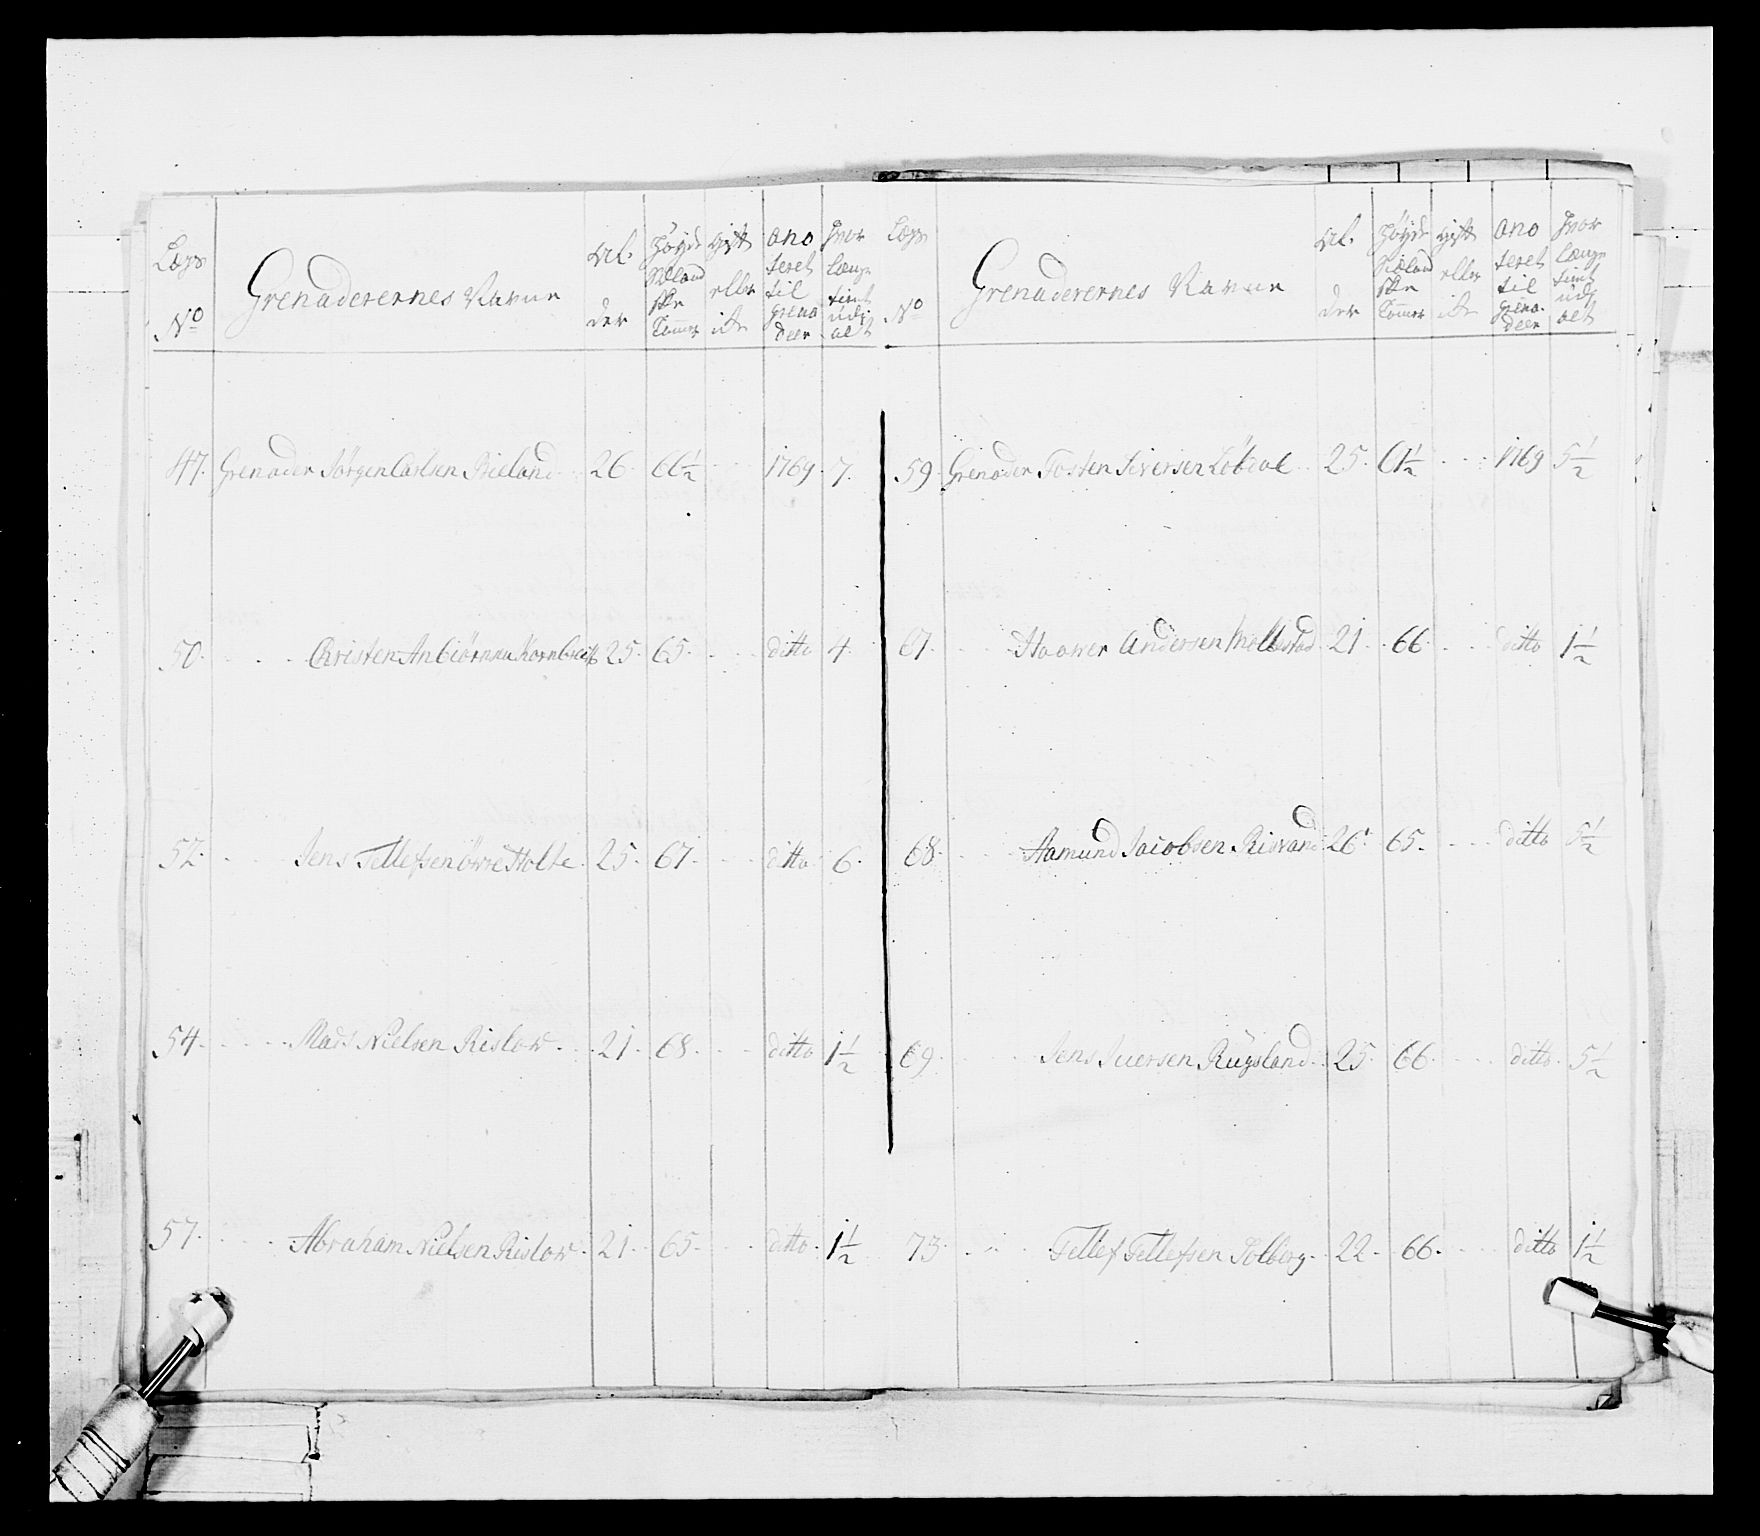 Lægs No Grenaderernes Navne Al. der Høyde Siæland ske Tommer gift eller icke ano teret til grena deer hvor længe tient udi alt
47. Grenader Jørgen Carlsen Bieland 26 66½ 1769 7.
50. Christen Anbiørnsen 25 65 ditto 4.
52. Jens Tellefsen øvre Holte 25. 67. ditto 6.
54. Mads Nielsen Rislow 21. 68. ditto 1½
57. Abraham Nielsen Rislow 21. 65. ditto 1½
Lægs No Grenaderernes Navne Al. der Høyde Siæland ske Tommer gift eller icke ano teret til grena- deer hvor længe tient udi alt
59. Grenader Tosten Siversen Løbdal 25. 61½ 1769 5½
61. Haawer Andersen Mollestad 21. 66. ditto 1½
68. Aamund Jacobsen Risvand 26. 65. ditto 5½
69. Jens Iversen Rügsland 25. 66. ditto 5½
73. Tellef Tellefsen Solberg 22. 66. ditto 1½